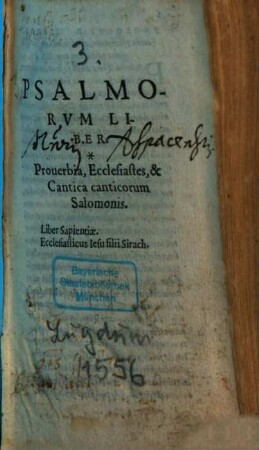 3.
PSALMO-
RVM LI-
BER
*
Prouerbia, Ecclesiastes, &
Cantica canticorum
Salomonis.
Liber Sapientiæ.
Ecclesiasticus Iesu filii Sirach.
Bayerische
Staatsbibliothek
München
Lugduni
1556